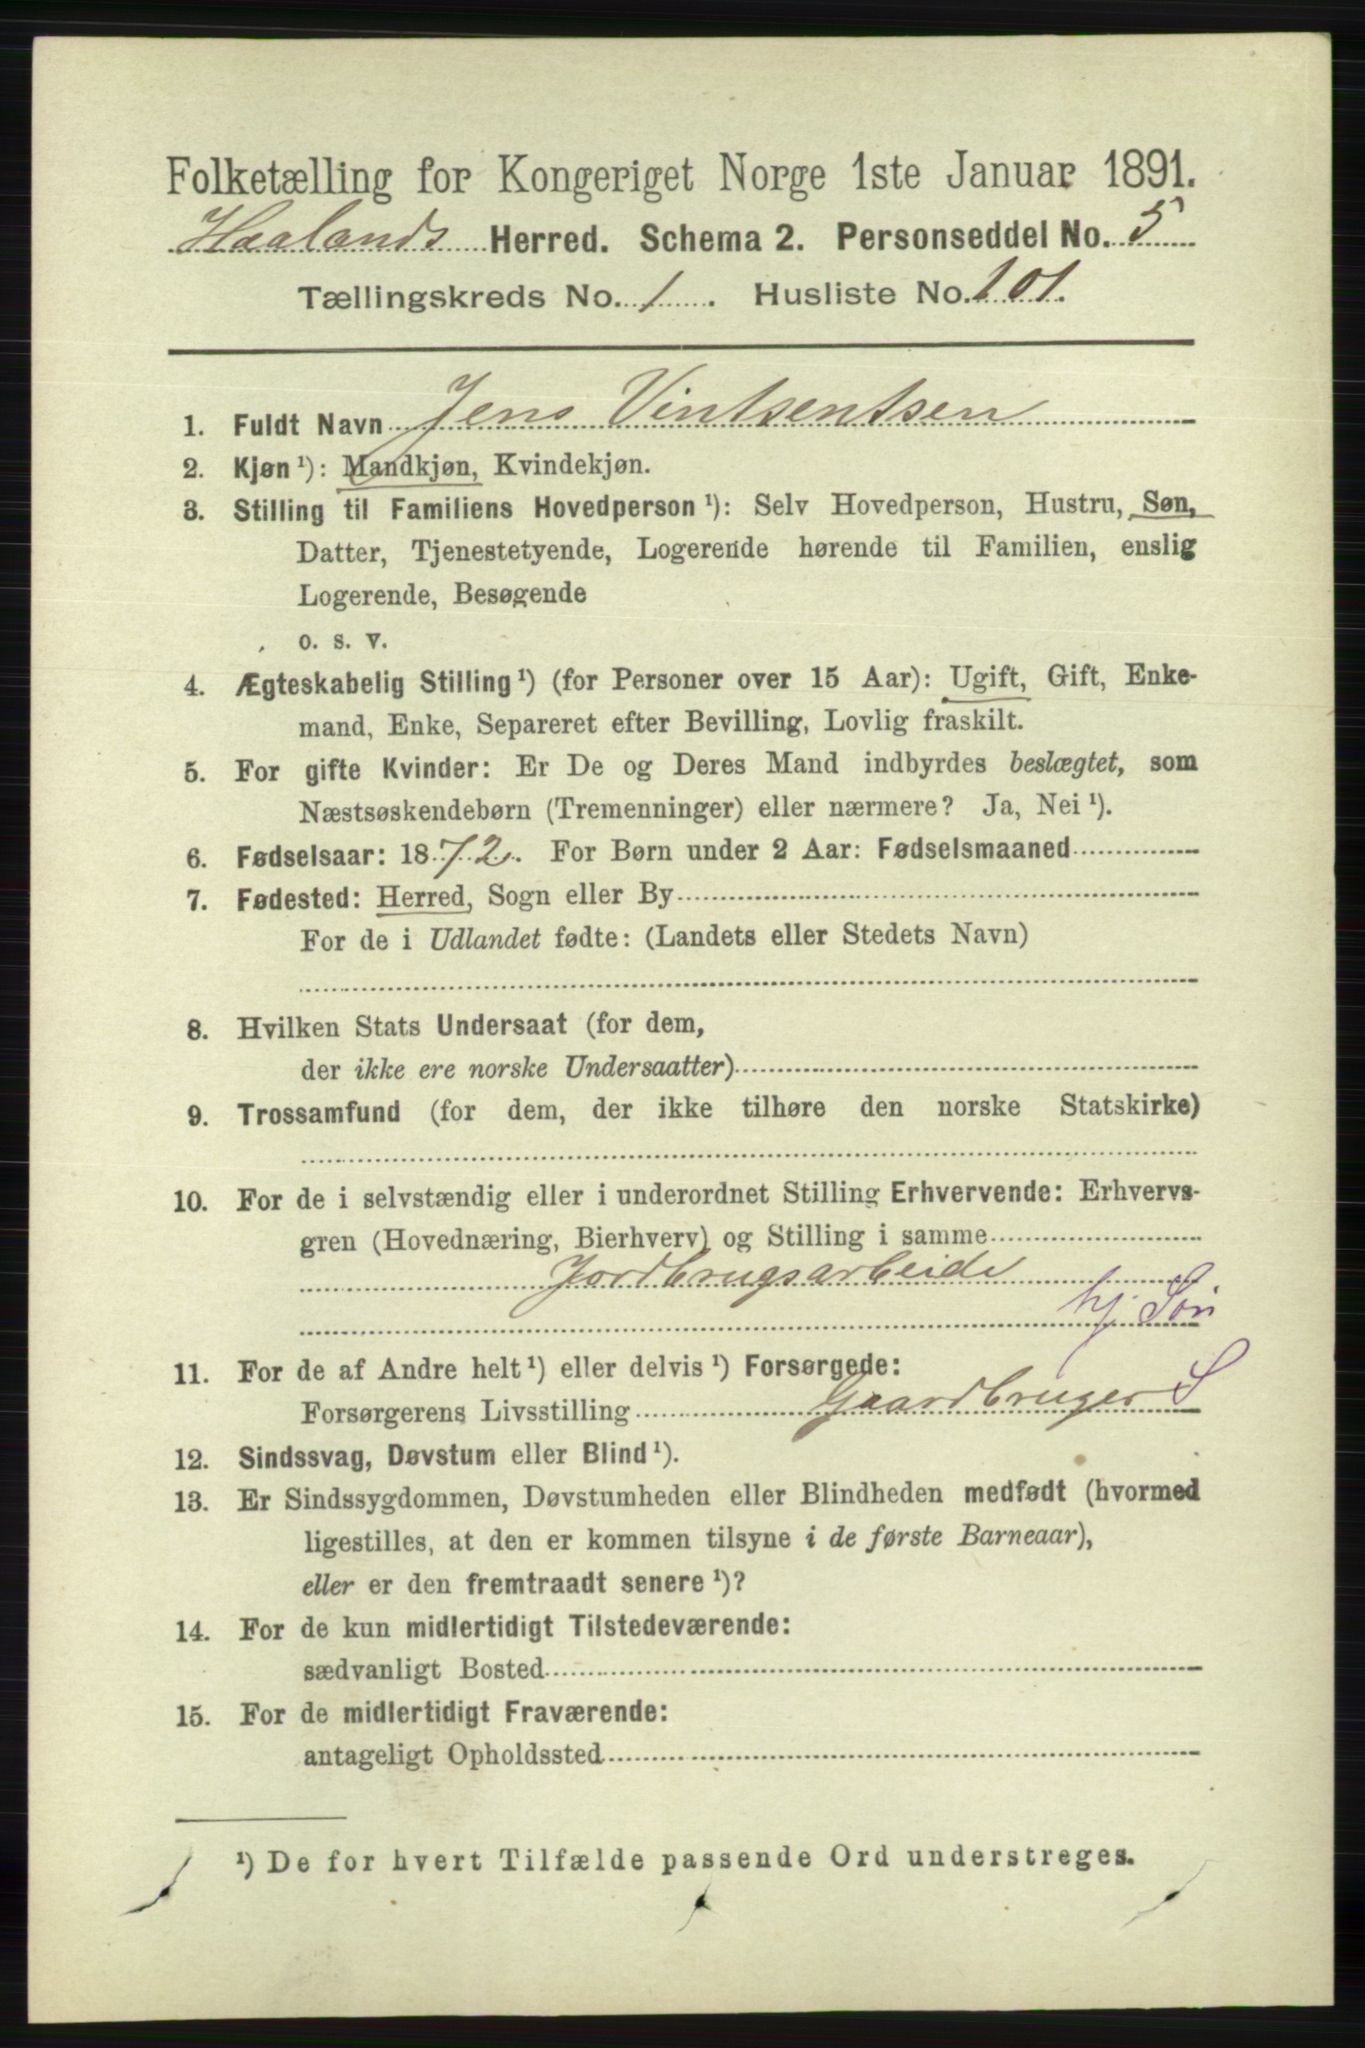 Folketælling for Kongeriget Norge 1ste Januar 1891.
Haalands Herred. Schema 2. Personseddel No. 5
Tællingskreds No. 1. Husliste No. 101.
1. Fuldt Navn Jens Vintsentsen
2. Kjøn ¹): Mandkjøn, Kvindekjøn.
3. Stilling til Familiens Hovedperson ¹): Selv Hovedperson, Hustru, Søn,
Datter, Tjenestetyende, Logerende hørende til Familien, enslig
Logerende, Besøgende
o. s. v.
4. Ægteskabelig Stilling ¹) (for Personer over 15 Aar): Ugift, Gift, Enke-
mand, Enke, Separeret efter Bevilling, Lovlig fraskilt.
5. For gifte Kvinder: Er De og Deres Mand indbyrdes beslægtet, som
Næstsøskendebørn (Tremenninger) eller nærmere? Ja, Nei ¹).
6. Fødselsaar: 1872. For Børn under 2 Aar: Fødselsmaaned
7. Fødested: Herred, Sogn eller By
For de i Udlandet fødte: (Landets eller Stedets Navn)
8. Hvilken Stats Undersaat (for dem,
der ikke ere norske Undersaatter)
9. Trossamfund (for dem, der ikke tilhøre den norske Statskirke)
10. For de i selvstændig eller i underordnet Stilling Erhvervende: Erhvervs-
gren (Hovednæring, Bierhverv) og Stilling i samme
Jordbrugsarbeide
hj. Søn
11. For de af Andre helt ¹) eller delvis ¹) Forsørgede:
Forsørgerens Livsstilling Gaardbruger S
12. Sindssvag, Døvstum eller Blind ¹).
13. Er Sindssygdommen, Døvstumheden eller Blindheden medfødt (hvormed
ligestilles, at den er kommen tilsyne i de første Barneaar),
eller er den fremtraadt senere ¹)?
14. For de kun midlertidigt Tilstedeværende:
sædvanligt Bosted
15. For de midlertidigt Fraværende:
antageligt Opholdssted
¹) De for hvert Tilfælde passende Ord understreges.